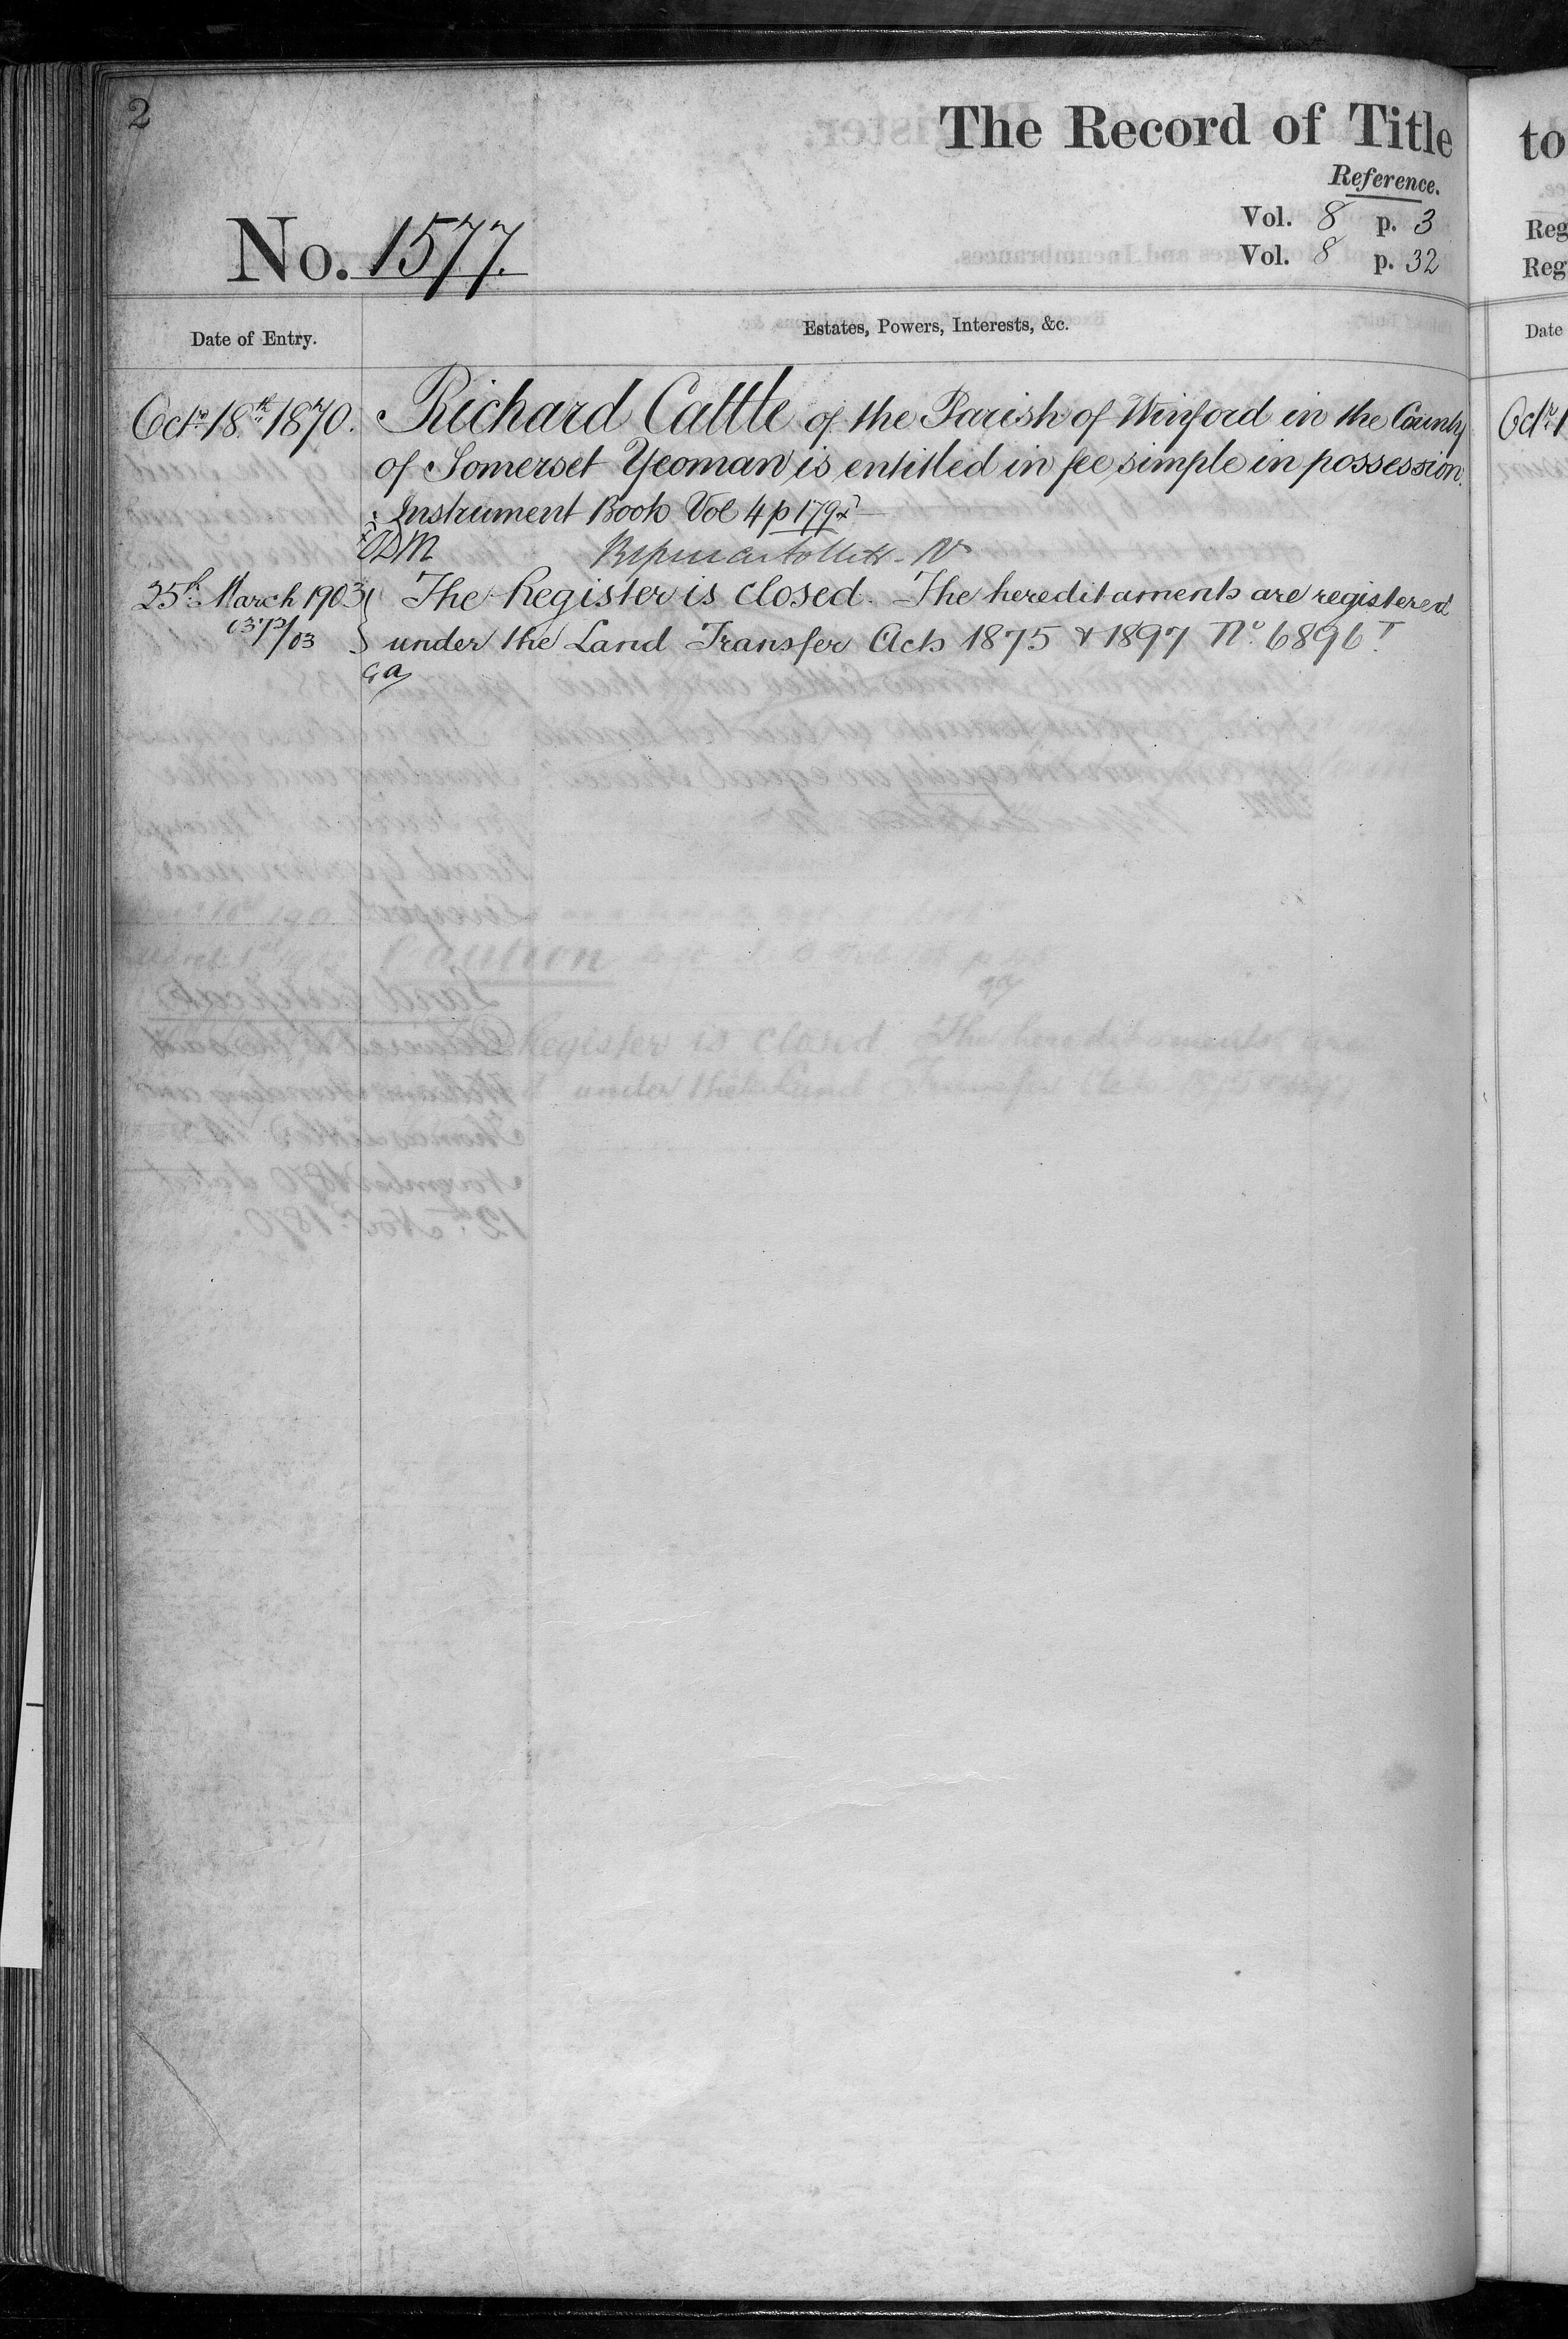 2
The Record of Title
Reference.
Vol. 8 p. 3
Vol. 8 p. 32
No. 1577.
Date of Entry.
Estates, Powers, Interests, &c.
Octr. 18th 1870.
Richard Cattle of the Parish of Winford in the County
of Somerset Yeoman is entitled in fee simple in possession.
Instrument Book Vol 4 p 179
25th March 1903
The Register is closed. The hereditaments are registered
under the Land Transfer Acts 1875 & 1897 No. 6896 T.
to
Reg
Reg
Date
Octr. 1